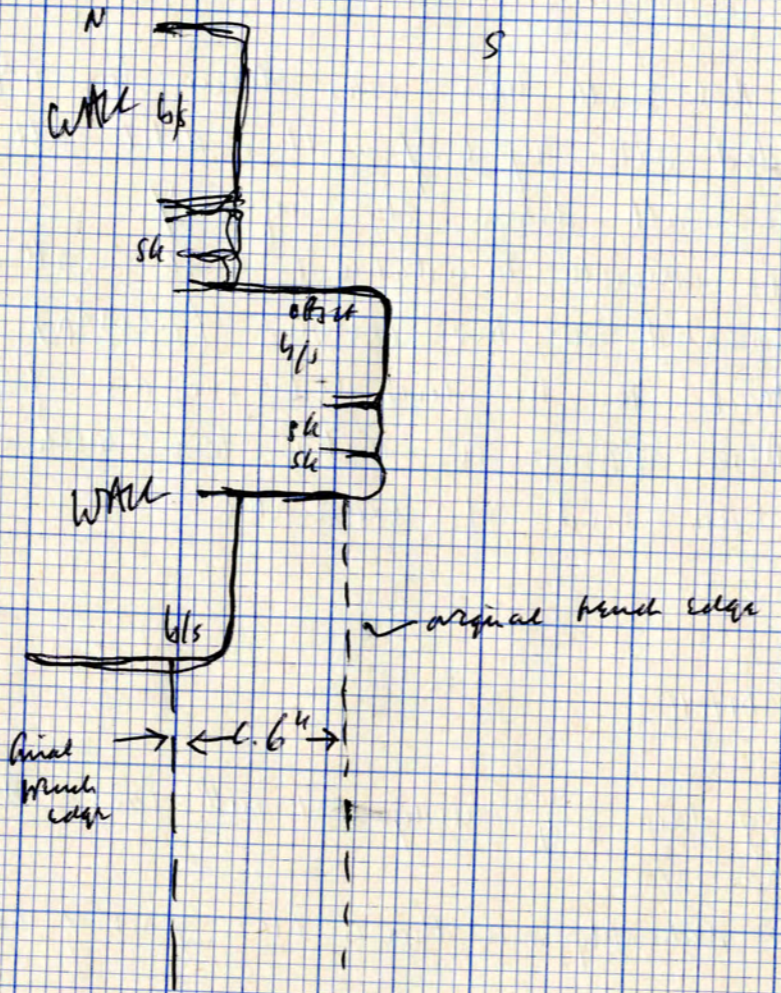 N
S
WALL b/s
sk
offset
b/s
sk
sk
WALL
original trench edge
b/s
c. 6"
final
trench
edge